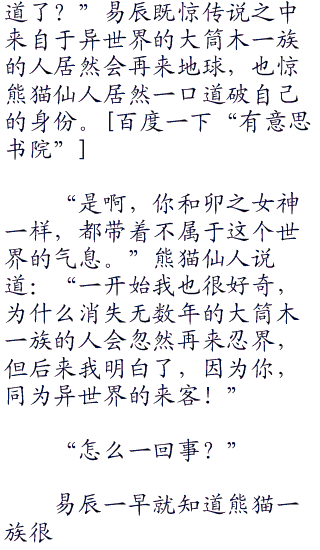 道了？”易辰既惊传说之中
来自于异世界的大筒木一族
的人居然会再来地球，也惊
熊猫仙人居然一口道破自己
的身份。[百度一下“有意思
书院”]
“是啊，你和卯之女神
一样，都带着不属于这个世
界的气息。”熊猫仙人说
道：“一开始我也很好奇，
为什么消失无数年的大筒木
一族的人会忽然再来忍界，
但后来我明白了，因为你，
同为异世界的来客！”
“怎么一回事？”
易辰一早就知道熊猫一
族很